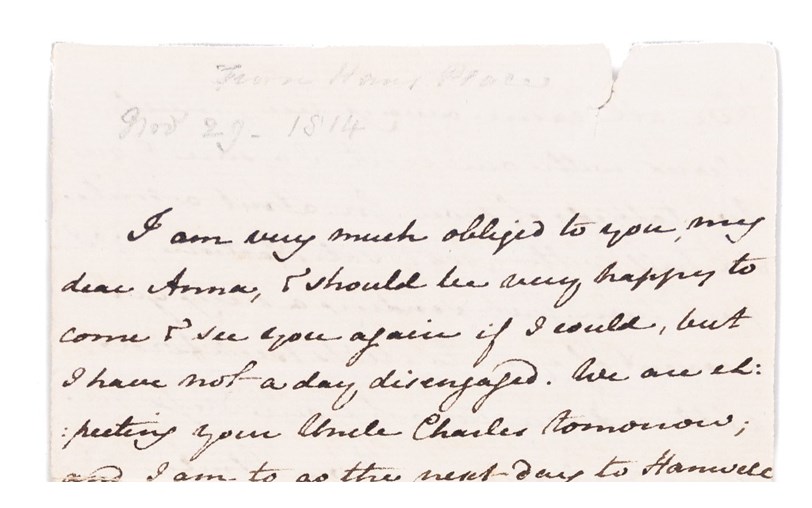 From Hans Place
Nov 29- 1814
I am very much obliged to you, my
dear Anna, & should be very happy to
come & see you again if I could, but
I have not a day disengaged. We are ex:
:pecting your Uncle Charles tomorrow;
and I am to go the next day to Hanwell